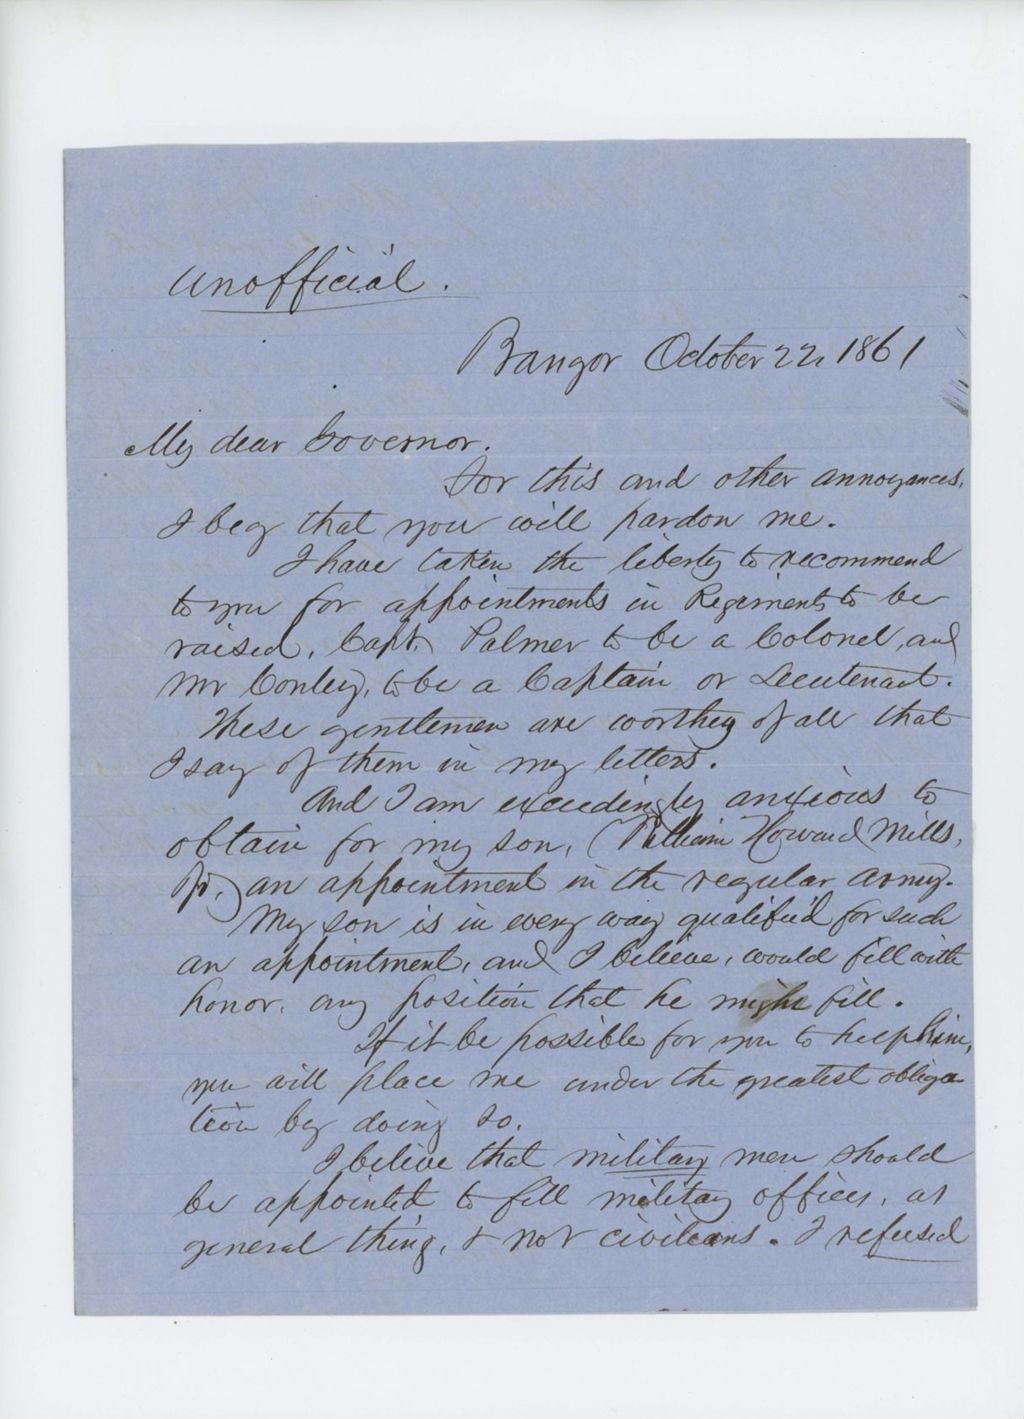 Unofficial.
Bangor October 22, 1861
My dear Governor.
For this and other annoyances,
I beg that you will pardon me.
I have taken the liberty to recommend
to you for appointments in Regiments to be
raised, Capt. Palmer to be a Colonel, and
Mr Conley, to be a Captain or Lieutenant.
These gentlemen are worthy of all that
I say of them in my letters.
And I am exceedingly anxious to
obtain for my son, (William Howard Mills,
Jr.) an appointment in the regular army.
My son is in every way qualified for such
an appointment, and I believe, would fill with
honor, any position that he might fill.
If it be possible for you to help him,
you will place me under the greatest obliga
tion by doing so.
I believe that military men should
be appointed to fill military offices, as
general thing, & not civilians. I refused